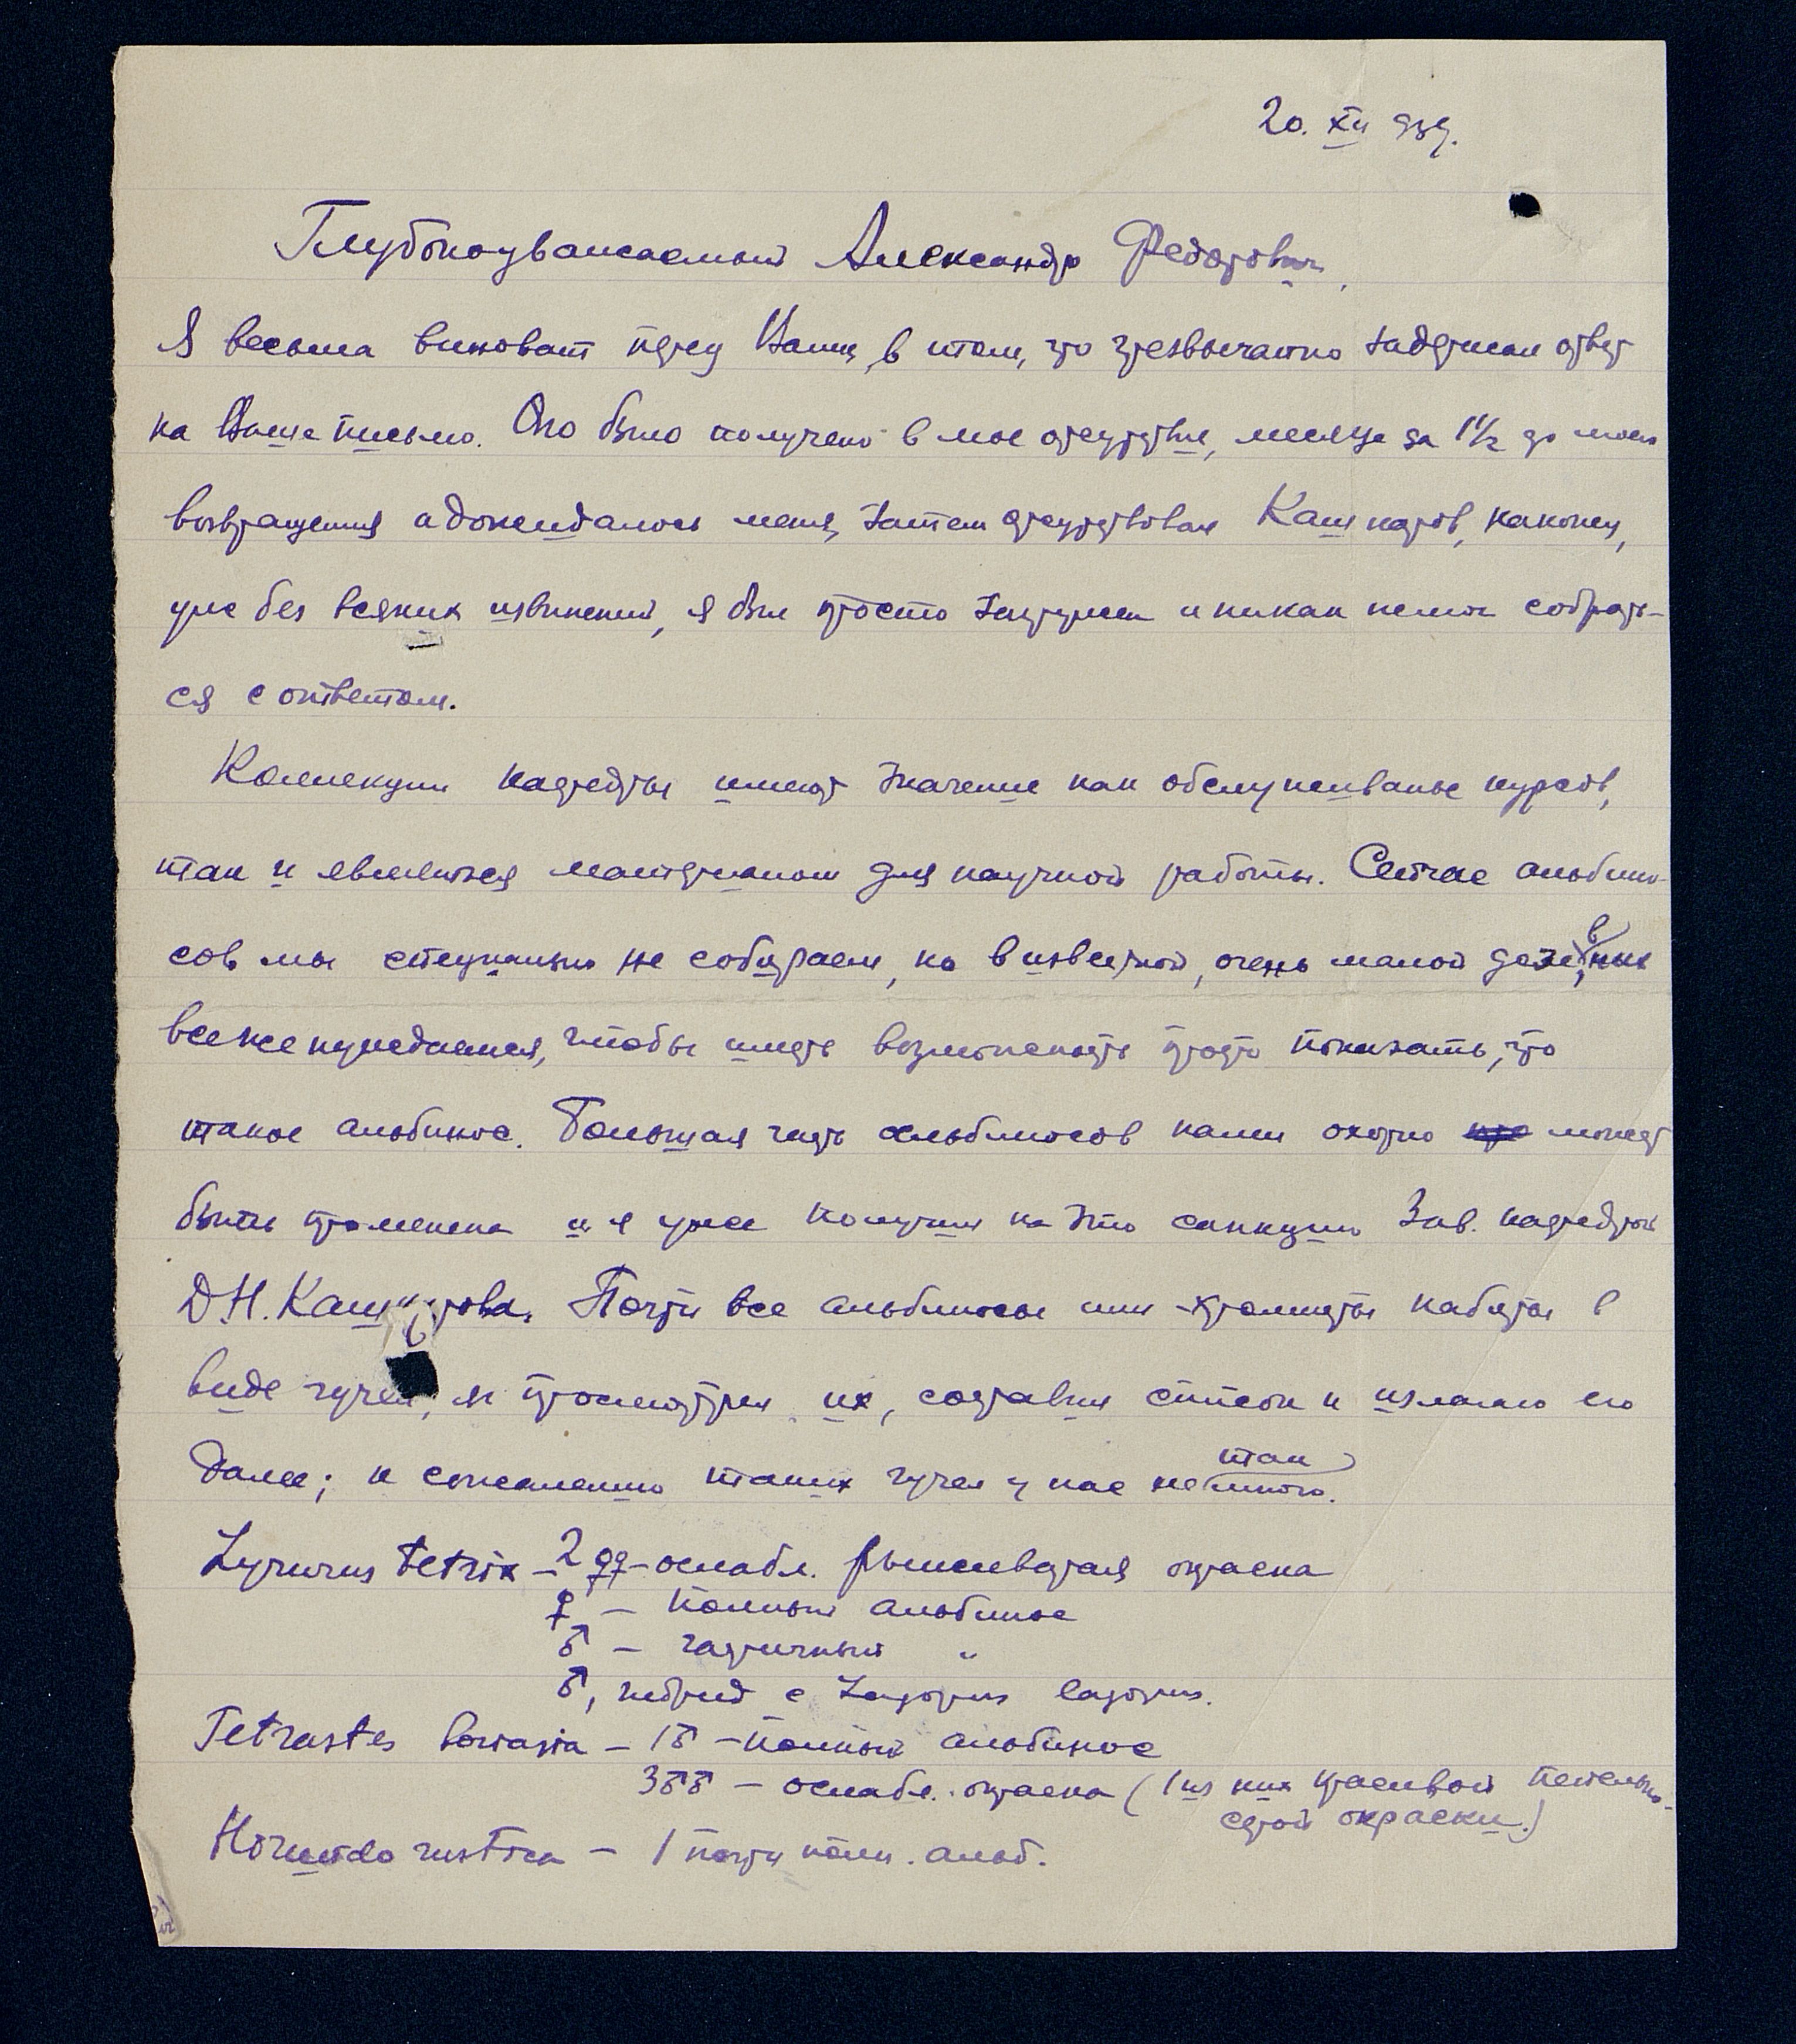 20. XII 939.
Глубокоуважаемый Александр Федорович,
Я весьма виноват перед Вами, в том, что чрезвычайно задержал ответ
на Ваше письмо. Оно было получено в мое отсутствие, месяца за 1 1/2 до моего
возвращения и дожидалось меня, затем отсутствовал Кашкаров, наконец,
уже без всяких извинений, я был просто загружен и никак не мог собрать-
ся с ответом.
Коллекции кафедры имеют значение как обслуживанье курсов,
так и являются материалом для научной работы. Сейчас альбино-
сов мы специально не собираем, но в известной, очень малой дозе, в них
все же нуждаемся, чтобы иметь возможность просто показать, что
такое альбинос. Большая часть альбиносов нами охотно может
быть променена и я уже получил на это санкцию Зав. кафедрой
Д.Н. Кашкарова. Почти все альбиносы или хромисты набиты в
виде чучел, я просмотрел их, составил список и излагаю его
далее; к сожалению таких чучел у нас не так много.
Lyrurus tetrix – 2 ♀♀ – ослабл. рыжеватая окраска
♀ – полный альбинос
♂ – частичный "
♂, гибрид с Lagopus lagopus.
Tetrastes bonasia – 1♂ – полный альбинос
3♂♂ – ослабл. окраска (1 из них красивой пепельно-
серой окраски.)
Hirundo rustica – 1 почти полн. альб.